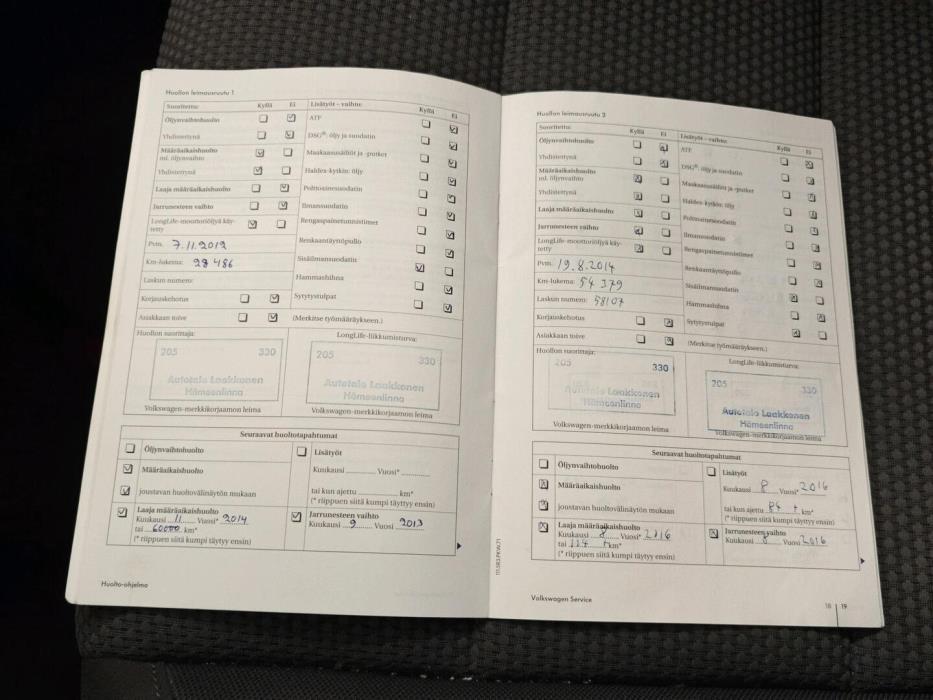 Huollon leimausruutu 1
Suoritettu: Kyllä Ei
Öljynvaihtohuolto
Yhdistettynä
Määräaikaishuolto
ml. öljynvaihto
Yhdistettynä
Laaja määräaikaishuolto
Jarrunesteen vaihto
LongLife-moottoriöljyä käy-
tetty
Pvm. 7.11.2012
Km-lukema: 28 486
Laskun numero:
Korjauskehotus
Asiakkaan toive
Lisätyöt – vaihto: Kyllä Ei
ATF
DSG®: öljy ja suodatin
Maakaasusäiliöt ja -putket
Haldex-kytkin: öljy
Polttoainesuodatin
Ilmansuodatin
Rengaspainetunnistimet
Renkaantäyttöpullo
Sisäilmansuodatin
Hammashihna
Sytytystulpat
(Merkitse työmääräykseen.)
Huollon suorittaja:
205 330
Autotalo Laakkonen
Hämeenlinna
Volkswagen-merkkikorjaamon leima
LongLife-liikkumisturva:
205 330
Autotalo Laakkonen
Hämeenlinna
Volkswagen-merkkikorjaamon leima
Seuraavat huoltotapahtumat
Öljynvaihtohuolto
Määräaikaishuolto
joustavan huoltovälinäytön mukaan
Laaja määräaikaishuolto
Kuukausi 11 Vuosi* 2014
tai 60000 km*
(* riippuen siitä kumpi täyttyy ensin)
Lisätyöt
Kuukausi Vuosi*
tai kun ajettu km*
(* riippuen siitä kumpi täyttyy ensin)
Jarrunesteen vaihto
Kuukausi 9 Vuosi 2013
Huolto-ohjelma
Huollon leimausruutu 2
Suoritettu: Kyllä Ei
Öljynvaihtohuolto
Yhdistettynä
Määräaikaishuolto
ml. öljynvaihto
Yhdistettynä
Laaja määräaikaishuolto
Jarrunesteen vaihto
LongLife-moottoriöljyä käy-
tetty
Pvm. 19.8.2014
Km-lukema: 54 379
Laskun numero: 58107
Korjauskehotus
Asiakkaan toive
Lisätyöt – vaihto: Kyllä Ei
ATF
DSG®: öljy ja suodatin
Maakaasusäiliöt ja -putket
Haldex-kytkin: öljy
Polttoainesuodatin
Ilmansuodatin
Rengaspainetunnistimet
Renkaantäyttöpullo
Sisäilmansuodatin
Hammashihna
Sytytystulpat
(Merkitse työmääräykseen.)
Huollon suorittaja:
205 330
Autotalo Laakkonen
Hämeenlinna
Volkswagen-merkkikorjaamon leima
LongLife-liikkumisturva:
205 330
Autotalo Laakkonen
Hämeenlinna
Volkswagen-merkkikorjaamon leima
Seuraavat huoltotapahtumat
Öljynvaihtohuolto
Määräaikaishuolto
joustavan huoltovälinäytön mukaan
Laaja määräaikaishuolto
Kuukausi 8 Vuosi* 2016
tai 114 t km*
(* riippuen siitä kumpi täyttyy ensin)
Lisätyöt
Kuukausi 8 Vuosi* 2016
tai kun ajettu 84 t km*
(* riippuen siitä kumpi täyttyy ensin)
Jarrunesteen vaihto
Kuukausi 8 Vuosi 2016
Volkswagen Service
18 19